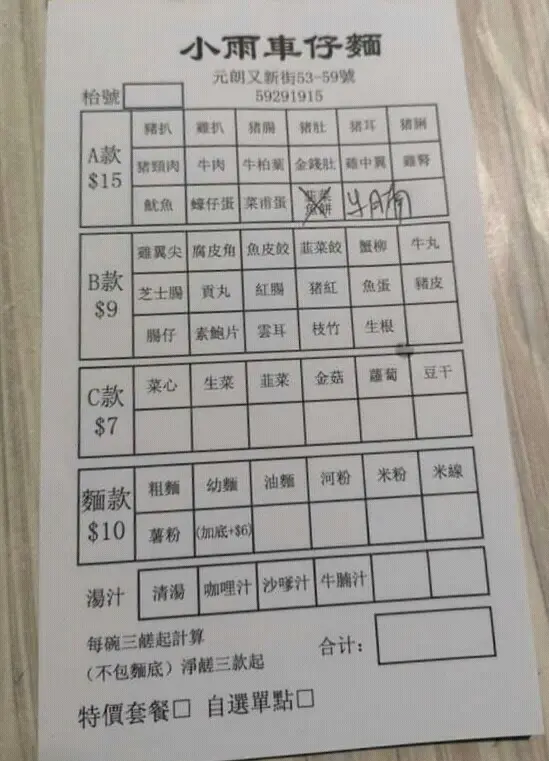 小雨車仔麵
元朗又新街53-59號
59291915
枱號
A款 $15
豬扒 雞扒 豬腸 豬肚 豬耳 豬脷
豬頸肉 牛肉 牛柏葉 金錢肚 雞中翼 雞腎
魷魚 蠔仔蛋 菜甫蛋 韮菜魚餅 牛腩
B款 $9
雞翼尖 腐皮角 魚皮餃 韮菜餃 蟹柳 牛丸
芝士腸 貢丸 紅腸 猪紅 魚蛋 豬皮
腸仔 素鮑片 雲耳 枝竹 生根
C款 $7
菜心 生菜 韮菜 金菇 蘿蔔 豆干
麵款 $10
粗麵 幼麵 油麵 河粉 米粉 米線
薯粉 (加底+$6)
湯汁 清湯 咖哩汁 沙嗲汁 牛腩汁
每碗三餸起計算
(不包麵底) 淨餸三款起
合计:
特價套餐□ 自選單點□